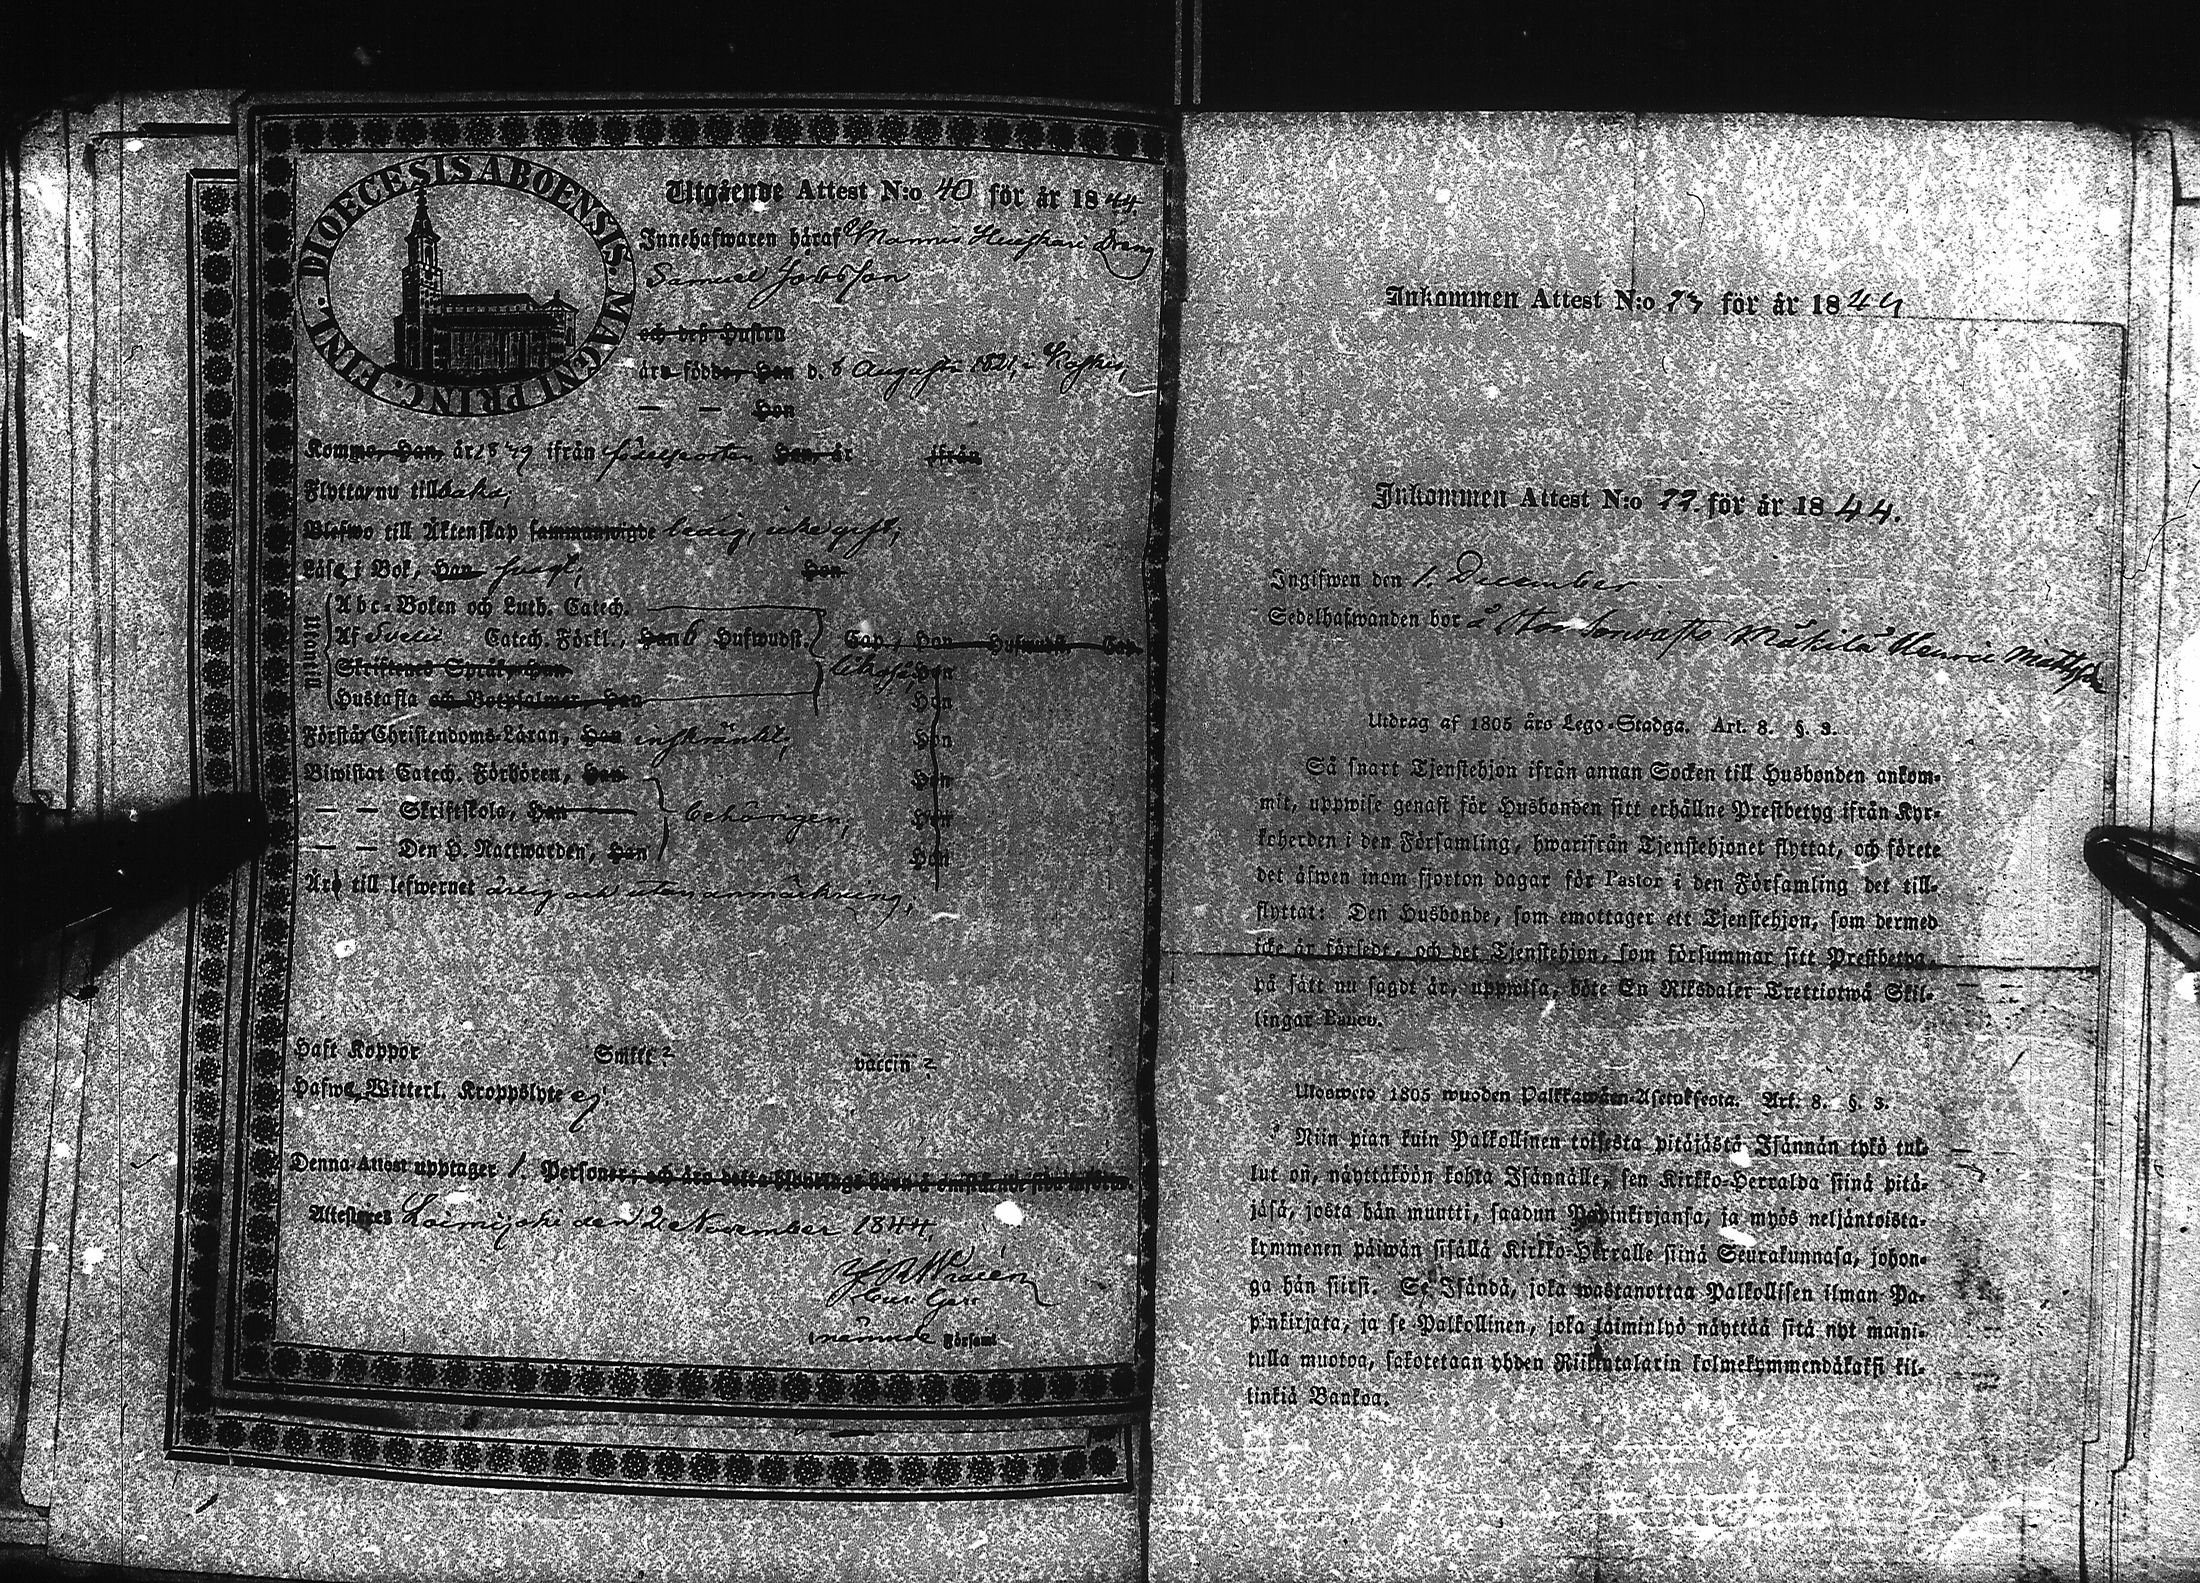 DIOECESIS ABOENSIS. MAGNI PRINC. FINL.
Utgående Attest N:o 40 för år 1844.
Innehafwaren häraf Mannis Drang
Samuel Jacobsson
och dess Hustru
äro födde, Han d. 8 Augusti 1821, i
— — Hon
Kommo, Han, år 18 ifrån Hon, år ifrån
Flyttar nu tillbaka,
Blefwo till Äktenskap sammanwigde ledig, icke gift,
Läsa i Bok, Han svagt, Hon
Abc-Boken och Luth. Catech.
Utantill
Af Svebelii Catech. Förkl., Han 6 Hufwudst. Cap., Hon Hufwudst. Cap.
Skriftenes Språk, Han Hon
Hustafla och Botpsalmer, Han Hon
Förstå Christendoms-Läran, Han inskränkt, Hon
Biwistat Catech. Förhören, Han Hon
— — Skriftskola, Han behörigen, Hon
— — Den H. Nattwarden, Han Hon
Äro till lefwernet ärlig och utan anmärkning,
Haft Koppor Smitt ? vaccin ?
Hafwa Witterl. Kroppslyte ej
Denna Attest upptager 1. Personer; och äro detta
Attesteres Loimijoki den 2 November 1844.
nämnde Församl
Inkommen Attest N:o för år 1844
Inkommen Attest N:o 77. för år 1844.
Ingifwen den 1. December
Sedelhafwanden bor å Mäkilä Henric
Utdrag af 1805 års Lego-Stadga. Art. 8. §. 3.
Så snart Tjenstehjon ifrån annan Socken till Husbonden ankom-
mit, uppwise genast för Husbonden sitt erhållne Prestbetyg ifrån Kyr-
koherden i den Församling, hwarifrån Tjenstehjonet flyttat, och förete
det äfwen inom fjorton dagar för Pastor i den Församling det till-
flyttat: Den Husbonde, som emottager ett Tjenstehjon, som dermed
icke är försedt, och det Tjenstehjon, som försummar sitt Prestbetyg,
på sätt nu sagdt är, uppwisa, böte En Riksdaler Trettiotwå Skil-
lingar Banco.
Ulosweto 1805 wuoden Palkkawäen-Asetuksesta. Art. 8. §. 3.
Niin pian kuin Palkollinen toisesta pitäjästä Isännän tykö tul-
lut on, näyttäköön kohta Isännälle, sen Kirkko-Herralda siinä pitä-
jäsä, josta hän muutti, saadun Papinkirjansa, ja myös neljäntoista-
kymmenen päiwän sisällä Kirkko-Herralle siinä Seurakunnasa, johon-
ga hän siirsi. Se Isändä, joka wastanottaa Palkollisen ilman Pa-
pinkirjata, ja se Palkollinen, joka laiminlyö näyttää sitä nyt maini-
tulla muotoa, sakotetaan yhden Riikintalarin kolmekymmendäkaksi kil-
linkiä Bankoa.